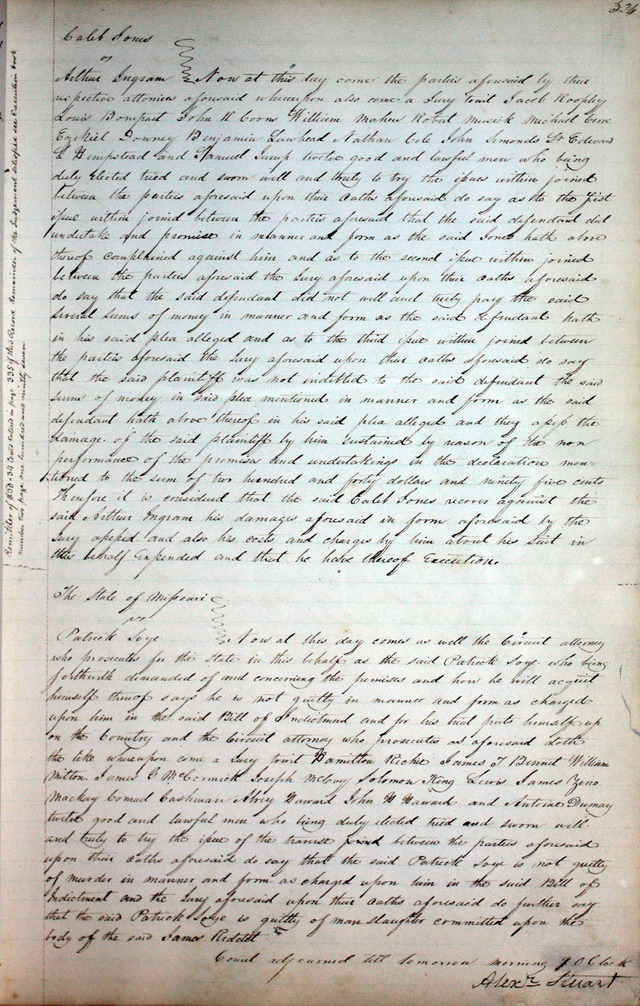 326
Caleb Jones
vs
Arthur Ingram Now at this day come the parties aforesaid by their
respective attornies aforesaid whereupon also come a Jury towit Jacob
Louis Bompart John K Coons William Maher Robert Musick Michael
Ezekiel Downey Benjamin Lawhead Nathan Cole John Simonds Sr Edward
L Hempstead and Samuel twelve good and lawful men who being
duly Elected tried and sworn well and truly to try the issues within joined
between the parties aforesaid upon their Oaths aforesaid do say as to the first
issue within joined between the parties aforesaid that the said defendant did
undertake and promise in manner and form as the said Jones hath above
thereof complained against him and as to the second issue within joined
between the parties aforesaid the Jury aforesaid upon their Oaths aforesaid
do say that the said defendant did not well and truly pay the said
several sums of money in manner and form as the said defendant hath
in his said plea alleged and as to the third issue within joined between
the parties aforesaid the Jury aforesaid upon their Oaths aforesaid do say
that the said plaintiff was not indebted to the said defendant the said
sums of money in said plea mentioned in manner and form as the said
defendant hath above thereof in his said plea alleged and they assess the
damage of the said plaintiff by him sustained by reason of the non
performance of the promises and undertakings in the declaration men-
tioned to the sum of two hundred and forty dollars and ninety five cents
Therefore it is considered that the said Caleb Jones recover against the
said Arthur Ingram his damages aforesaid in form aforesaid by the
Jury assessed and also his costs and charges by him about his Suit in
this behalf Expended and that he have thereof Execution.
The State of Missouri
vs
Patrick Soye Now at this day comes as well the Circuit attorney
who prosecutes for the State in this behalf as the said Patrick Soye who being
forthwith demanded of and concerning the premises and how he will acquit
himself thereof says he is not guilty in manner and form as charged
upon him in the said Bill of Indictment and for his trial puts himself up
on the Country and the Circuit attorney who prosecutes as aforesaid doth
the like whereupon come a Jury towit Hamilton Richie James T Bennet William
Milton James G McCormick Joseph McCoy Solomon King Lewis James Zeno
Mackay Conrad Cashman Alvey Haward John H Haward and Antoine Dumay
twelve good and lawful men who being duly elected tried and sworn well
and truly to try the issue of the traverse joined between the parties aforesaid
upon their Oaths aforesaid do say that the said Patrick Soye is not guilty
of murder in manner and form as charged upon him in the said Bill of
Indictment and the Jury aforesaid upon their Oaths aforesaid do further say
that the said Patrick Soye is guilty of man slaughter committed upon the
body of the said James
Court adjourned till tomorrow morning 9 O Clock
Alexr Stuart
Remittitur of Costs Entered in page 335 of this Record Remainder of the Judgement satisfied see Execution book
number two page one hundred and ninety seven